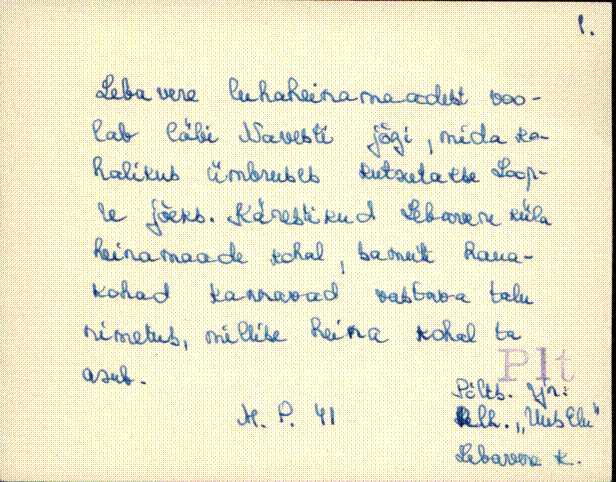 1.
Lebavere luhaheinamaadest voo-
lab läbi Navesti jõgi, mida ko-
halikus ümbruses kutsutakse Loop-
re jõeks. Kärestikud Lebavere küla
heinamaade kohal, samuti haua-
kohad kannavad vastava talu
nimetus, millise heina kohal ta
asub.
Plt
M. P. 41
Põlts. Yn:
"Uus Elu"
Lebavere k.